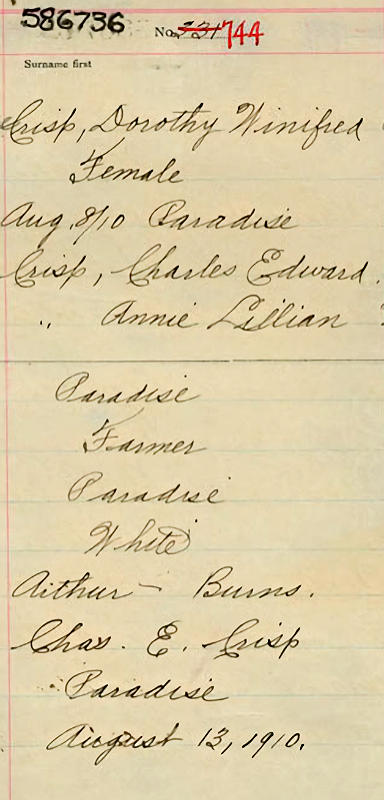 586736
No. 331 744
Surname first
Crisp, Dorothy Winifred
Female
Aug. 8/10 Paradise
Crisp, Charles Edward.
" Annie Lillian
Paradise
Farmer
Paradise
White
Arthur - Burns.
Chas. E. Crisp
Paradise
August 13, 1910.